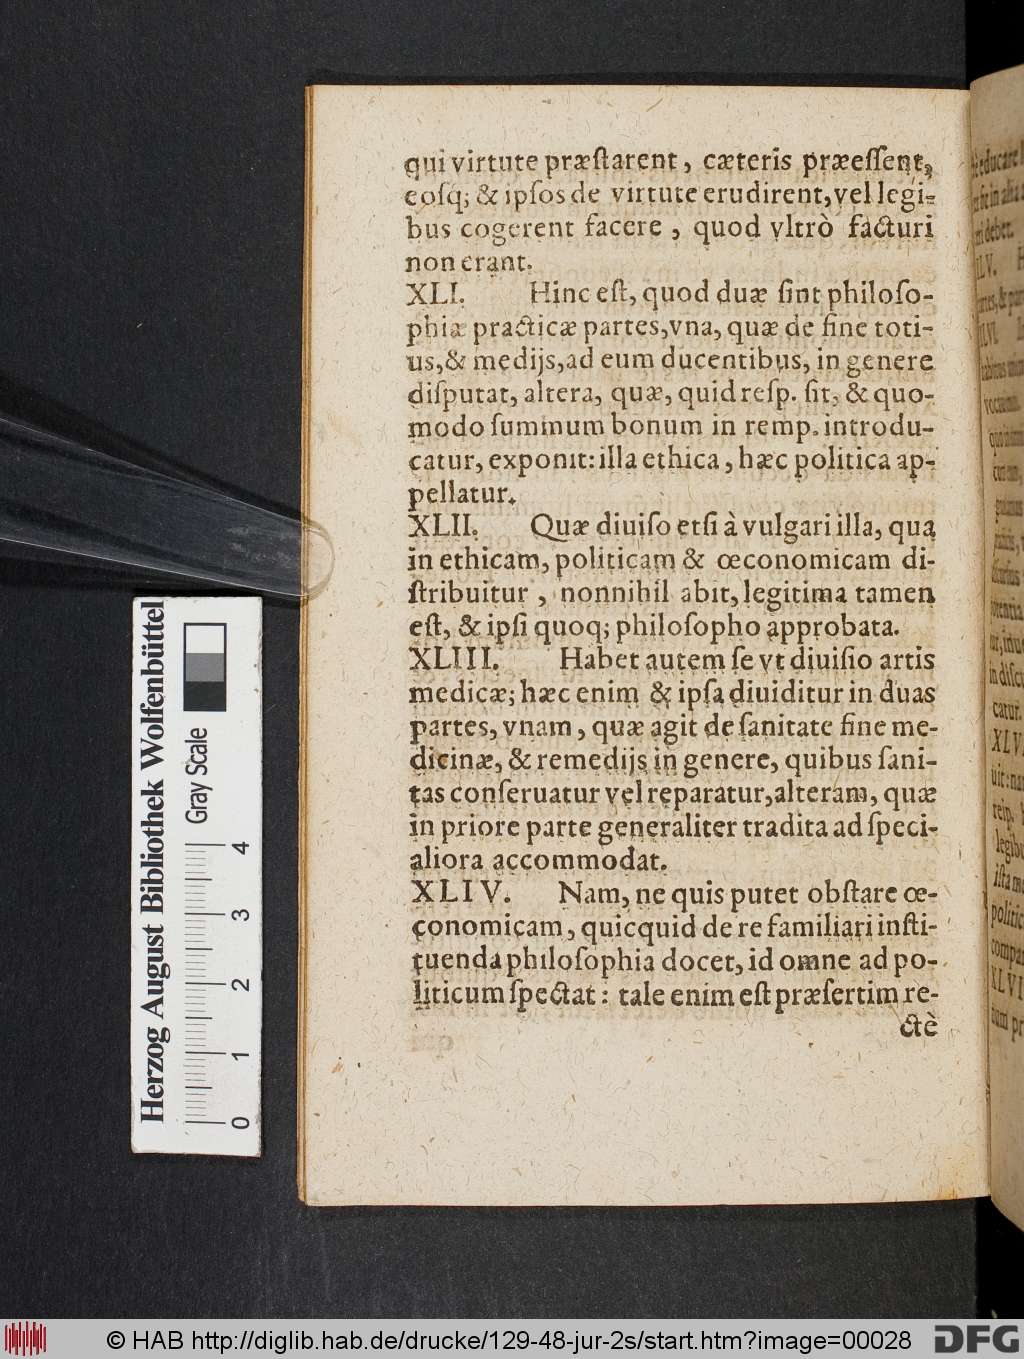 qui virtute præſtarent, cæteris præeſſent,
eoſq; & ipſos de virtute erudirent, vel legi-
bus cogerent facere, quod vltrò facturi
non erant.
XLI. Hinc eſt, quod duæ ſint philoſo-
phiæ practicæ partes, vna, quæ de fine toti-
us, & medijs, ad eum ducentibus, in genere
diſputat, altera, quæ, quid reſp. ſit, & quo-
modo ſummum bonum in remp. introdu-
catur, exponit: illa ethica, hæc politica ap-
pellatur.
XLII. Quæ diuiſo etſi à vulgari illa, qua
in ethicam, politicam & œconomicam di-
ſtribuitur, nonnihil abit, legitima tamen
eſt, & ipſi quoq; philoſopho approbata.
XLIII. Habet autem ſe vt diuiſio artis
medicæ; hæc enim & ipſa diuiditur in duas
partes, vnam, quæ agit de ſanitate fine me-
dicinæ, & remedijs in genere, quibus ſani-
tas conſeruatur vel reparatur, alteram, quæ
in priore parte generaliter tradita ad ſpeci-
aliora accommodat.
XLIV. Nam, ne quis putet obſtare œ-
conomicam, quicquid de re familiari inſti-
tuenda philoſophia docet, id omne ad po-
liticum ſpectat: tale enim eſt præſertim re-
ctè
Herzog August Bibliothek Wolfenbüttel
Gray Scale
0 1 2 3 4
© HAB http://diglib.hab.de/drucke/129-48-jur-2s/start.htm?image=00028
DFG